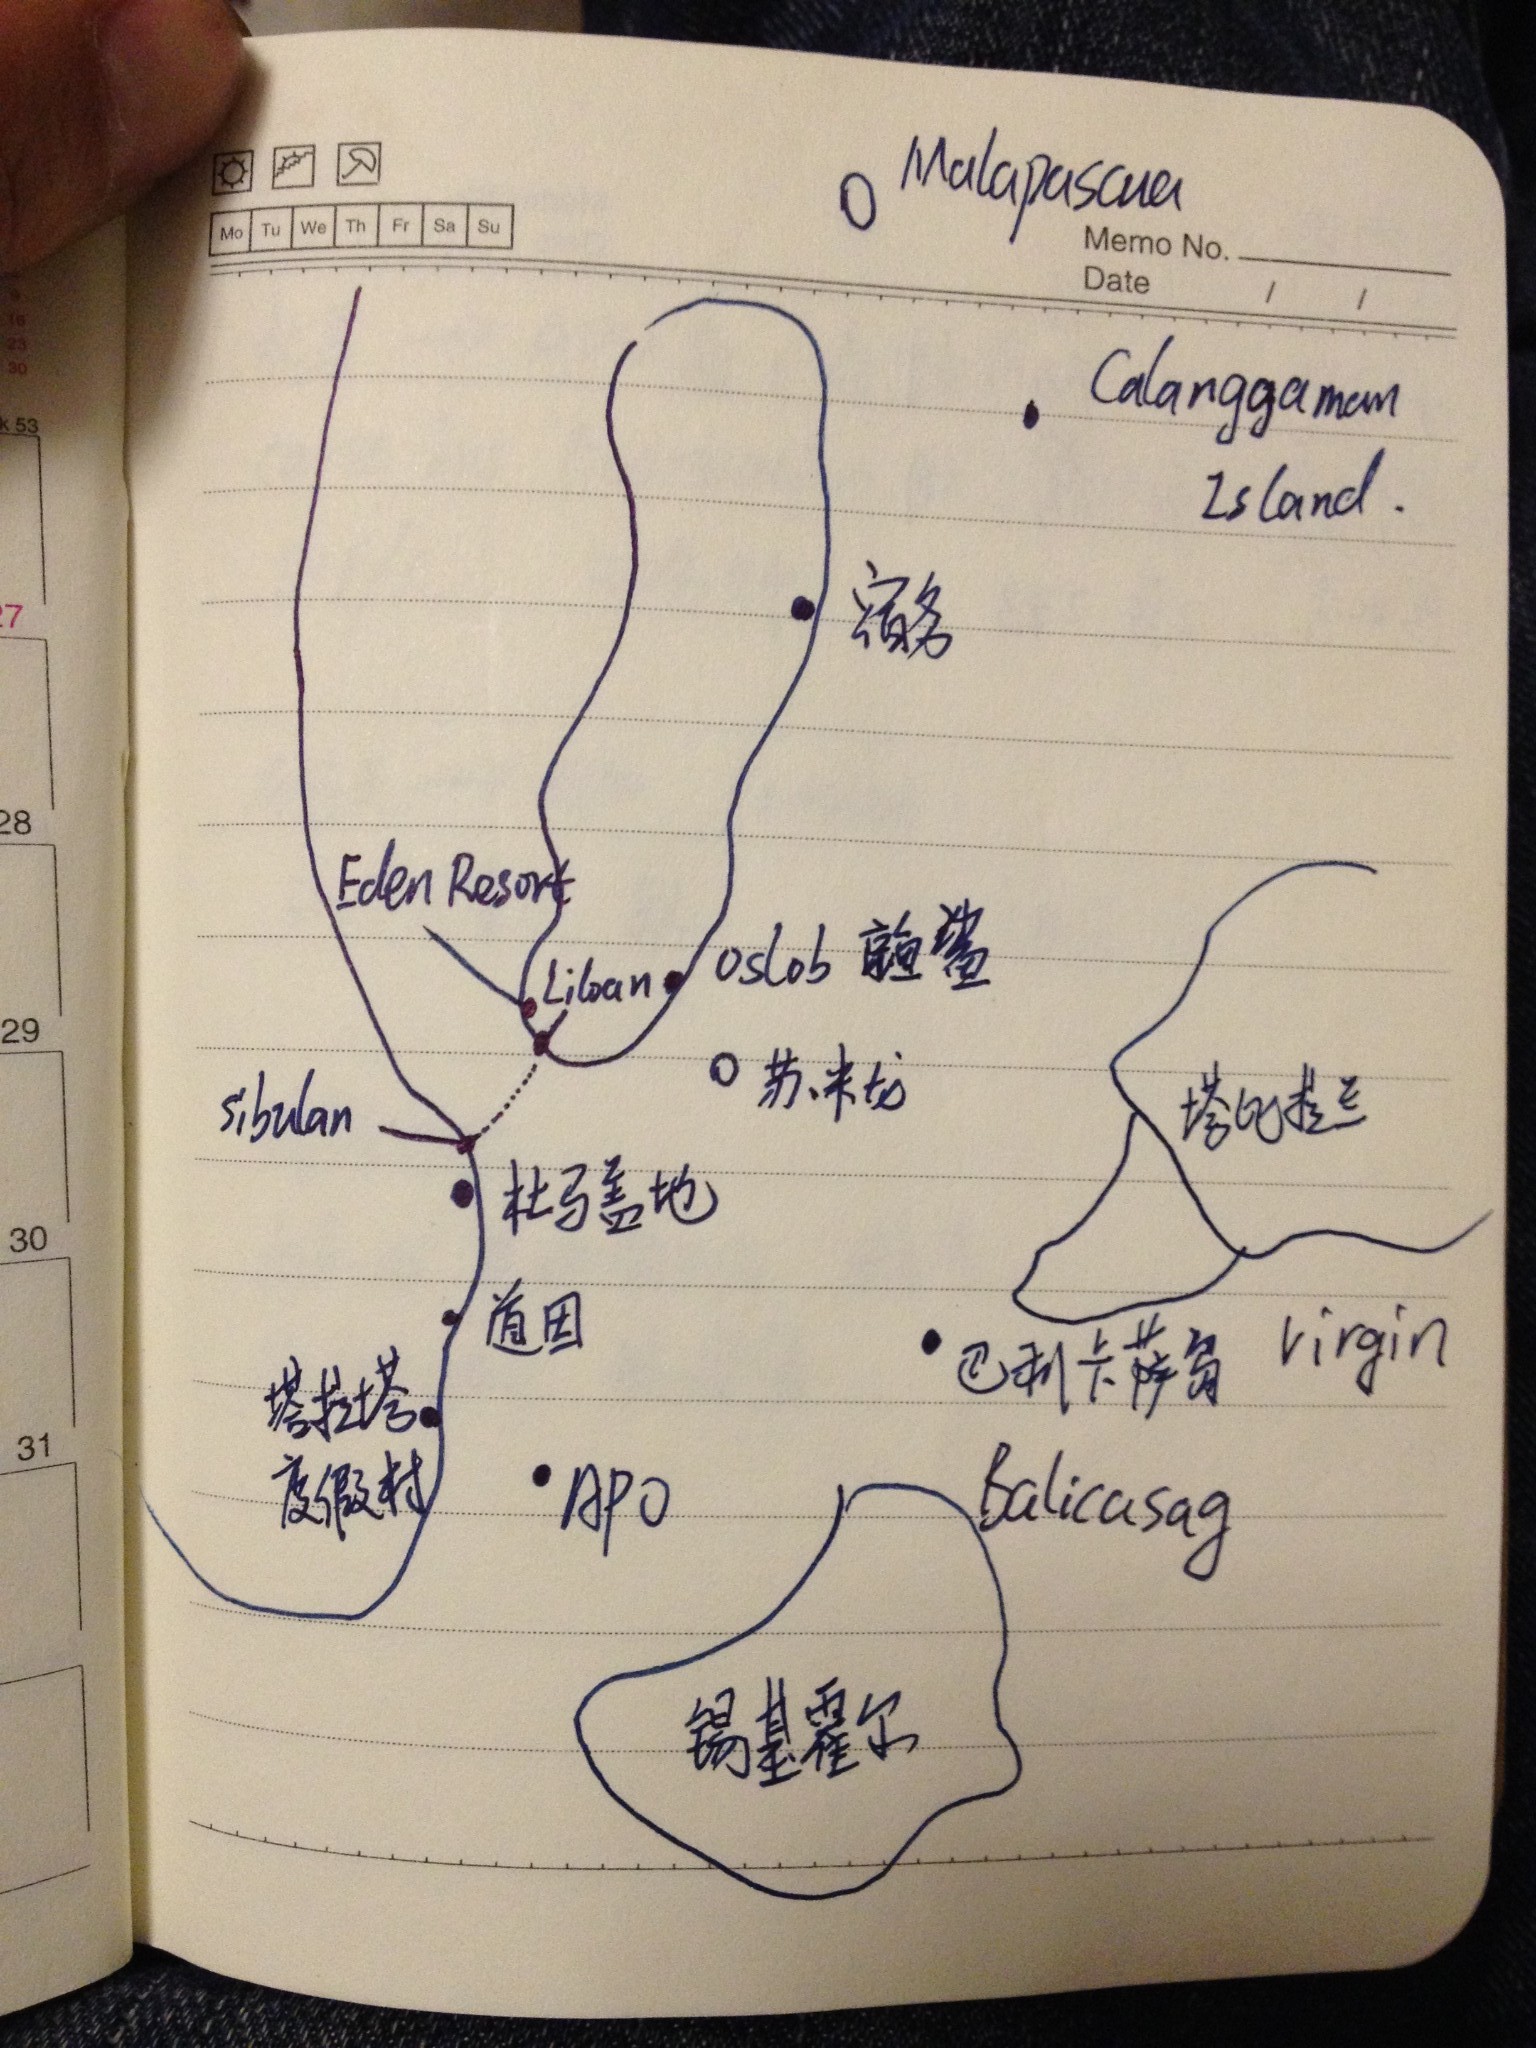 Malapascua
Mo Tu We Th Fr Sa Su
Memo No.
Date / /
Calanggaman
Island.
宿务
Eden Resort
Liloan
Oslob 鲸鲨
苏米龙
Sibulan
塔比拉兰
杜马盖地
道因
virgin
巴利卡萨岛
塔拉塔
度假村
APO
Balicasag
锡基霍尔
16
23
30
k 53
27
28
29
30
31